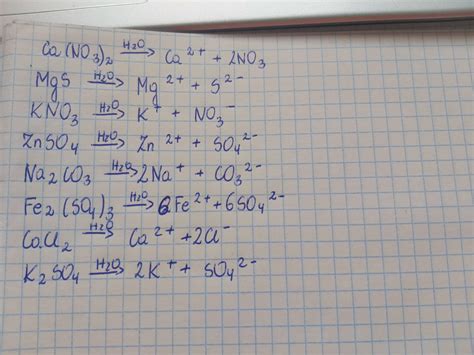 Ca(NO₃)₂ H₂O→ Ca²⁺ + 2NO₃
MgS H₂O→ Mg²⁺ + S²⁻
KNO₃ H₂O→ K⁺ + NO₃⁻
ZnSO₄ H₂O→ Zn²⁺ + SO₄²⁻
Na₂CO₃ H₂O→ 2Na⁺ + CO₃²⁻
Fe₂(SO₄)₃ H₂O→ 6Fe²⁺ + 6SO₄²⁻
CaCl₂ H₂O→ Ca²⁺ + 2Cl⁻
K₂SO₄ H₂O→ 2K⁺ + SO₄²⁻